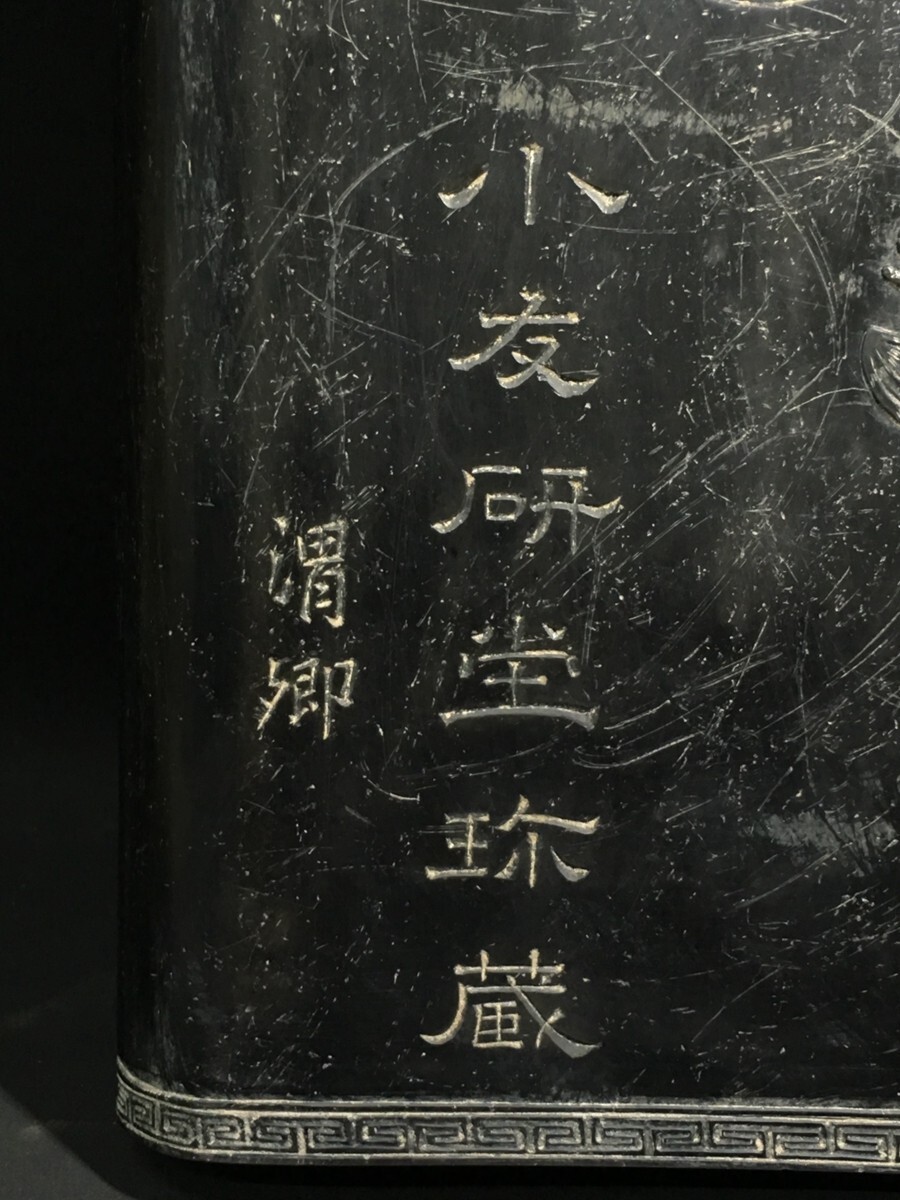 小友研堂珎蔵
渭卿